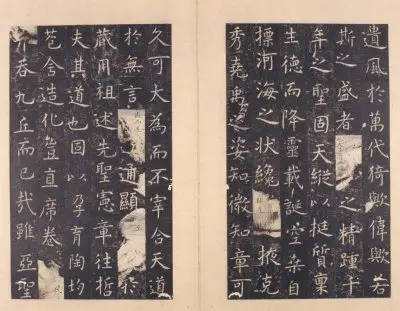 遺風於萬代猗歟偉歟若
斯之盛者之精踵千
年之聖固天縱以挺質稟
生德而降靈載誕空桑自
摽河海之狀纔掖克
秀堯禹之姿知微知章可
久可大為而不宰合天道
於無言通顯於
藏用祖述先聖憲章往哲
夫其道也固以孕育陶均
苞含造化豈直席卷
吞九丘而已哉雖亞聖